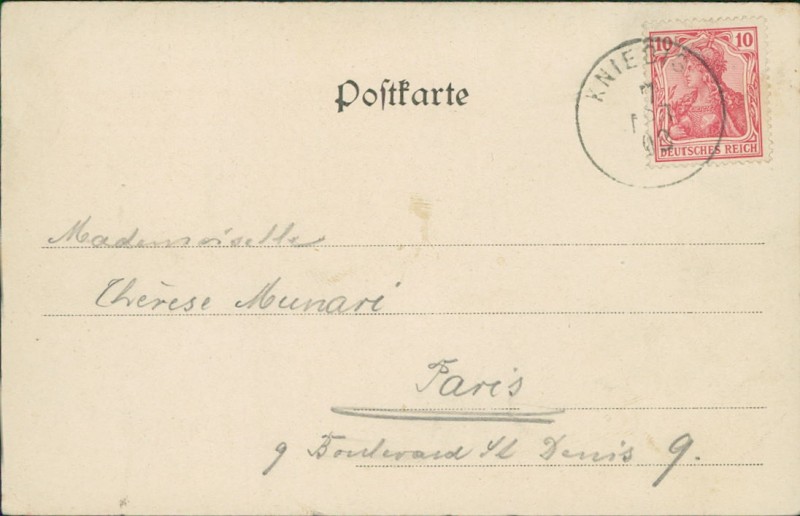 Poſtkarte
10 10
DEUTSCHES REICH
KNIEBIS
Mademoiselle
Thérèse Munari
Paris
9 Boulevard St Denis 9.